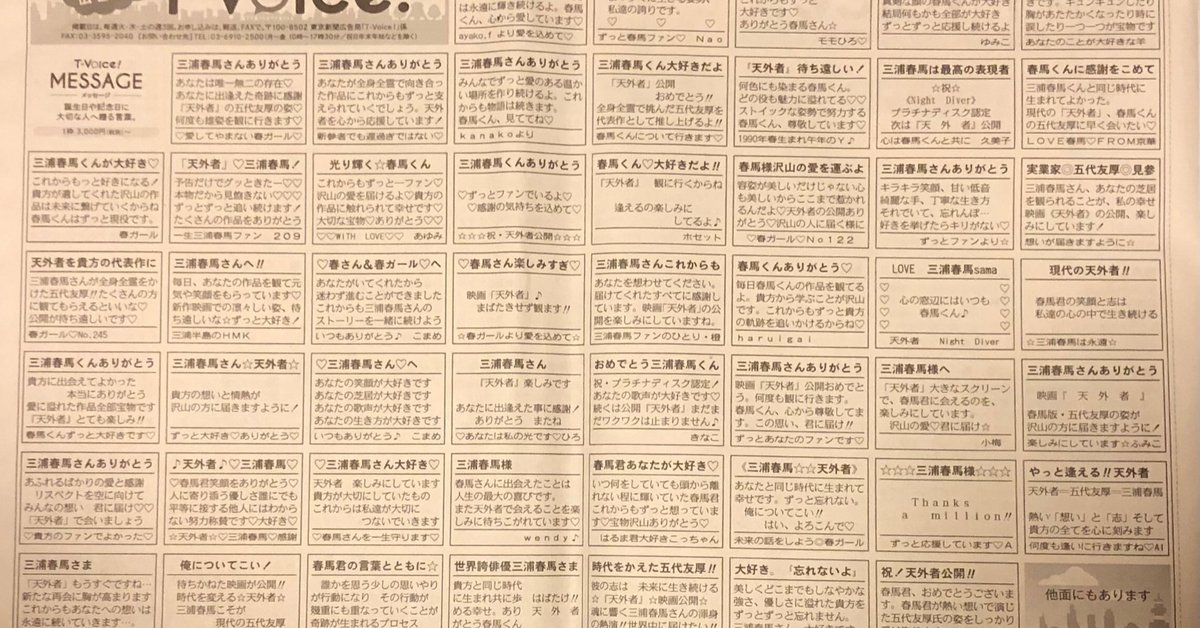 T-Voice!
FAX:03-3595-2040
T-Voice!
MESSAGE
メッセージ
誕生日や記念日に
大切な人へ贈る言葉。
1枠 3,000円(税別)〜
は永遠に輝き続けるよ。春馬
くん、心から愛しています！
ayako.fより愛を込めて♡
私達の誇りです。
ずっと春馬ファン♡ Nao
これからもずっと
大好きです。
ありがとう春馬さん♡
モモひろ♡
結局何もかも全部が大好き
ずっとずっと応援し続けるよ
ゆみこ
胸があたたかくなったり時に
涙したり一つ一つが宝物です
あなたのことが大好きな羊
三浦春馬さんありがとう
あなたは唯一無二の存在♡
あなたに出逢えた奇跡に感謝
「天外者」の五代友厚の姿♡
何度も雄姿を観に行きます♡
♡愛してやまない春ガール♡
三浦春馬さんありがとう
あなたが全身全霊で向き合っ
た作品にこれからもずっと支
えられていくでしょう。天外
者を心から応援しています！
新参者でも遅過ぎではない♡
三浦春馬さんありがとう
みんなでずっと愛のある温か
い場所を作り続けるよ。これ
からも物語は続きます。
春馬くん、見ててね♡
kanakoより
三浦春馬くん大好きだよ
「天外者」公開
おめでとう!!
全身全霊で挑んだ五代友厚を
代表作として推し上げるよ!!
春馬くんについて行きます♡
「天外者」待ち遠しい！
何色にも染まる春馬くん。
どの役も魅力に溢れてる♡♡
ストイックな姿勢で努力する
春馬くん、尊敬しています♡
1990年春生まれ午年のY♪
三浦春馬は最高の表現者
☆祝☆
《Night Diver》
プラチナディスク認定
次は「天 外 者」公開
心は春馬くんと共に 久美子
春馬くんに感謝をこめて
三浦春馬くんと同じ時代に
生まれてよかった。
現代の「天外者」、春馬くん
の五代友厚に早く会いたい♡
LOVE春馬♡FROM京華
三浦春馬くんが大好き♡
これからもっと好きになる！
貴方が遺してくれた沢山の作
品は未来に繋げていくからね
春馬くんはずっと現役です。
春ガール
「天外者」♡三浦春馬！
予告だけでグッときたー♡♡
本物だから見飽きない♡♡
ずっとずっと追い続けます！
たくさんの作品をありがとう
一生三浦春馬ファン 209
光り輝く☆春馬くん
これからもずっと一ファン♡
沢山の愛を届けるよ♡貴方の
作品に触れられて幸せです♡
大切な宝物♡ありがとう♡♡
♡♡WITH LOVE♡♡ あゆみ
三浦春馬さんありがとう
♡ずっとファンでいるよ♡
♡感謝の気持ちを込めて♡
☆☆☆祝・天外者公開☆☆☆
春馬くん♡大好きだよ!!
「天外者」 観に行くからね
逢えるの楽しみに
してるよ♪
ホセット
春馬様沢山の愛を運ぶよ
容姿が美しいだけじゃない心
も美しいからここまで惹かれ
るんだよ♡天外者の公開あり
がとう♡沢山の人に届く様に
♡春ガール♡No122
三浦春馬さんありがとう
キラキラ笑顔、甘い低音
綺麗な手、丁寧な生き方
それでいて、忘れんぼ…
好きを挙げたらキリがない♡
ずっとファンより☆
実業家◎五代友厚◎見参
三浦春馬さん、あなたの芝居
を観られることが、私の幸せ
映画《天外者》の公開、楽し
みにしています！
想いが届きますように☆
天外者を貴方の代表作に
三浦春馬さんが全身全霊をか
けた五代友厚!!たくさんの方
に観てもらえるといいな♡
公開が待ち遠しいです♡
春ガール♡No.245
三浦春馬さんへ!!
毎日、あなたの作品を観て元
気や笑顔をもらっています♡
新作映画での凛々しい姿、待
ち遠しいな☆ずっと大好き！
三浦半島のHMK
♡春さん&春ガール♡へ
あなたがいてくれたから
迷わず進むことができました
これからも三浦春馬さんの
ストーリーを一緒に続けよう
いつもありがとう♪ こまめ
♡春馬さん楽しみすぎ♡
映画「天外者」♪
まばたきせず観ます!!
☆春ガールより愛を込めて☆
三浦春馬さんこれからも
あなたを想わせてください。
届けてくれたすべてに感謝し
ています。映画「天外者」の公
開を楽しみにしていますね。
三浦春馬ファンのひとり・橙
春馬くんありがとう♡
毎日春馬くんの作品を観てる
よ。貴方から学ぶことが沢山
です。これからもずっと貴方
の軌跡を追いかけるからね♡
haruigai
LOVE 三浦春馬sama
♡ ♡
♡ 心の窓辺にはいつも ♡
♡ 春馬くん♪ ♡
天外者 Night Diver
現代の天外者!!
春馬君の笑顔と志は
私達の心の中で生き続ける
☆三浦春馬は永遠☆
三浦春馬くんありがとう
貴方に出会えてよかった
本当にありがとう
愛に溢れた作品全部宝物です
「天外者」とても楽しみ!!
春馬くんずっと大好きです♡
三浦春馬さん☆天外者☆
貴方の想いと情熱が
沢山の方に届きますように！
ずっと大好き♡ありがとう♡
♡三浦春馬さん♡へ
あなたの笑顔が大好きです
あなたの芝居が大好きです
あなたの歌声が大好きです
あなたの生き方が大好きです
いつもありがとう♪ こまめ
三浦春馬さん
「天外者」楽しみです
あなたに出逢えた事に感謝！
ありがとう またね
♡あなたは私の光です♡ひろ
おめでとう三浦春馬くん
祝・プラチナディスク認定！
あなたの歌声が大好きです！
続くは公開「天外者」まだま
だワクワクは止まりません♪
きなこ
三浦春馬さんありがとう
映画「天外者」公開おめでと
う。何度も観に行きます。
春馬くん、心から尊敬してま
す。この思い、君に届け!!
ずっとあなたのファンです♡
三浦春馬様へ
「天外者」大きなスクリーン
で、春馬君に会えるのを、
楽しみにしています。
沢山の愛♡君に届け☆
小梅
三浦春馬さんありがとう
映画『 天 外 者 』
春馬版・五代友厚の姿が
沢山の方に届きますように！
楽しみにしています☆ふみこ
三浦春馬さんありがとう
あふれるばかりの愛と感謝
リスペクトを空に向けて
みんなの想い 君に届け♡
「天外者」で会いましょう
♡貴方のファンでよかった♡
♪天外者♪♡三浦春馬♡
♡春馬君笑顔をありがとう♡
人に寄り添う優しさ誰にでも
平等に接する他人にはわから
ない努力称賛です♡大好き♡
☆天外者☆♡三浦春馬♡感謝
♡三浦春馬さん大好き♡
天外者 楽しみにしています
貴方が大切にしていたもの
これからは私達が大切に
つないでいきます
♡春馬さんを一生守ります♡
三浦春馬様
春馬さんに出会えたことは
人生の最大の喜びです。
また天外者で会えることを楽
しみに待ちこがれています♡
wendy♪
春馬君あなたが大好き♡
いつ何をしていても頭から離
れない程に輝いていた春馬君
これからもずっと想っていま
す♡宝物沢山ありがとう♡
はるま君大好きこっちゃん
《三浦春馬☆☆天外者》
あなたと同じ時代に生まれて
幸せです。ずっと忘れない。
俺についてこい!!
はい、よろこんで♡
未来の話をしよう◎春ガール
☆☆☆三浦春馬様☆☆☆
Thanks
a million!!
ずっと応援しています♡A
やっと逢える!!天外者
天外者=五代友厚=三浦春馬
熱い「想い」と「志」そして
貴方の全てを心に刻みます
何度も逢いに行きますね♡AI
三浦春馬さま
「天外者」もうすぐですね…
新たな再会に胸が高まります
これからもあなたへの想いは
永遠に続いていきます…
俺についてこい！
待ちかねた映画が公開!!
時代を変える☆天外者☆
三浦春馬こそが
現代の五代友厚
春馬君の言葉とともに☆
誰かを思う少しの思いやり
が行動になり その行動が
幾重にも重なっていくことが
奇跡が生まれるプロセス
世界誇俳優三浦春馬さま
貴方と同じ時代
に生まれ共に歩 はばたけ!!
める幸せ。あり 天 外 者
がとう春馬くん
時代をかえた五代友厚!!
彼の志は 未来に生き続ける
☆「天外者」☆映画公開♡
魂に響く三浦春馬さんの渾身
の熱演!!世界中に届けたい!!
大好き。「忘れないよ」
美しくどこまでもしなやかな
強さ、優しさに溢れた貴方を
ずっとずっと忘れません。
三浦春馬さんありがとう
祝！天外者公開!!
春馬君、おめでとうございま
す。春馬君が熱い想いで演じ
た五代友厚氏の姿をしっかり
他面にもあります